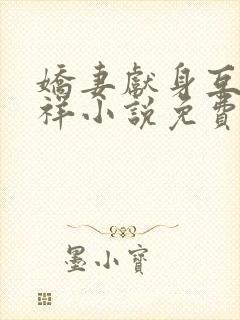 嬌妻獻身互
祥小說免費
墨小寶